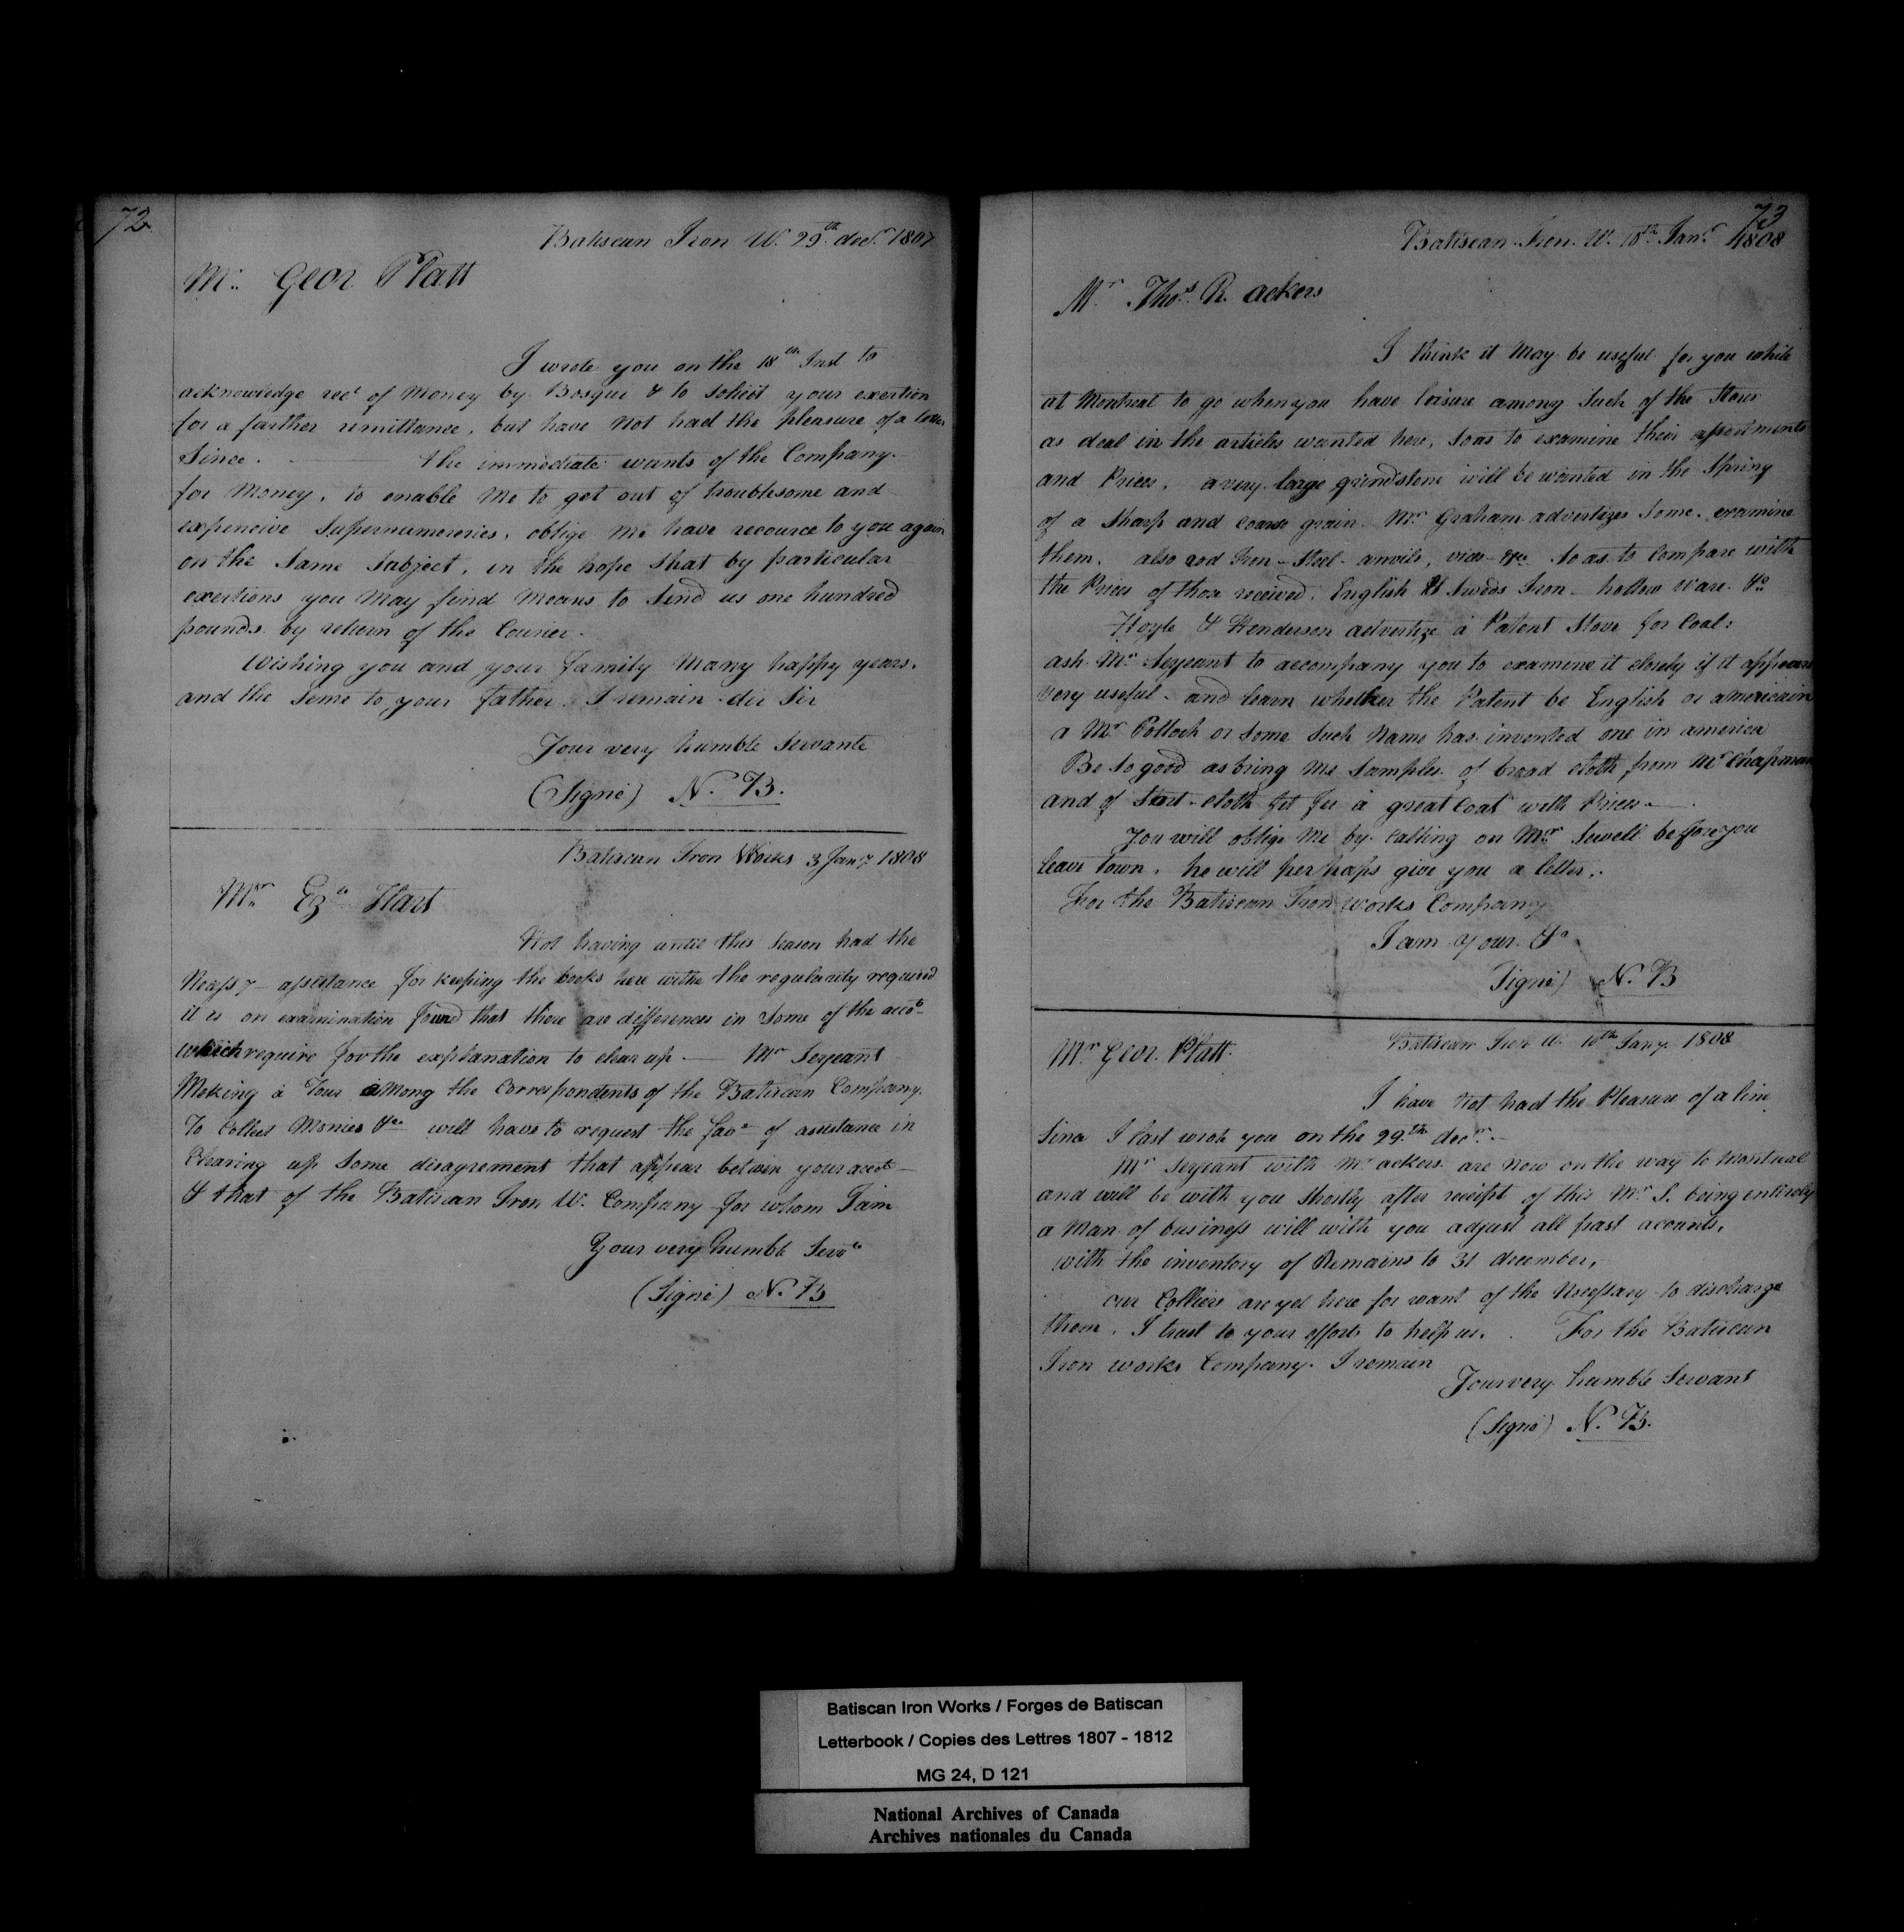 72
Batiscan Iron W. 29th decr 1807
Mr. Geor Platt
I wrote you on the 18th Inst to
acknowledge recd of Money by Bosqui & to Solicit your exertion
for a farther remittance, but have Not had the pleasure of a letter
Since. the immediate wants of the Company
for Money, to enable Me to get out of troublesome and
expencive Supernumereries, oblige Me have recource to you again
on the Same Subject, in the hope that by particular
exertions you May find Means to Send us one hundred
pounds by return of the Courier.
Wishing you and your family Many happy years,
and the Seme to your father I remain der Sir
Your very humble Servante
(Signé) N. B.
Batiscan Iron Works 3 Jany 1808
Mr. Ezl Hart
Not having until this Season had the
Necessy assistance for keeping the books here withe the regularity required
it is on examination found that there are differences in Some of the accots
which require for the explanation to clear up — Mr Serjeant
Making a Tour among the Correspondents of the Batiscan Company.
To Collect Monies &c will have to request the favr of assistance in
Clearing up Some disagrement that appear between your accots
& that of the Batiscan Iron W. Company for whom I am
Your very humble Servts
(Signé) N. B
73
Batiscan Iron W. 10th Janr 1808
Mr Thos R. ackers
I think it May be useful for you while
at Montreal to go when you have leisure among Such of the Stores
as deal in the articles wanted here, So as to examine their assortments
and Prices. a very large grindstone will be wanted in the Spring
of a Sharp and coarse grain Mr Graham advertizes Some. examine
them. also rod Iron - Steel - anvils, vices &c So as to Compare with
the Prices of those received. English & Sweds Iron - hollow ware &c
Hoyle & Henderson advertize a Patent Stove for Coal:
ask Mr Serjeant to accompany you to examine it closely if it appears
very useful - and learn whether the Patent be English or americain
a Mr Pollock or Some Such Name has invented one in america
Be So good as bring Me Samples of broad cloth from Mr Chapman
and of cloth fit for a great Coat with Prices.
You will oblige Me by Calling on Mr Sewell before you
leave town, he will perhaps give you a letter.
For the Batiscan Iron works Company
I am your &c
Signé) N. B
Batiscan Iron W. 10th Jany 1808
Mr Geor. Platt.
I have Not had the Pleasure of a line
Since I last wrote you on the 29th decr.
Mr Serjeant with Mr ackers are Now on the way to Montreal
and will be with you Shortly after receipt of this Mr S. being entirely
a Man of business will with you adjust all past acounts,
with the inventory of Remains to 31 december,
our Colliers are yet here for want of the Necessary to discharge
them. I trust to your efforts to help us. For the Batiscan
Iron works Company. I remain
Your very humble Servant
(Signé) N. B.
Batiscan Iron Works / Forges de Batiscan
Letterbook / Copies des Lettres 1807 - 1812
MG 24, D 121
National Archives of Canada
Archives nationales du Canada